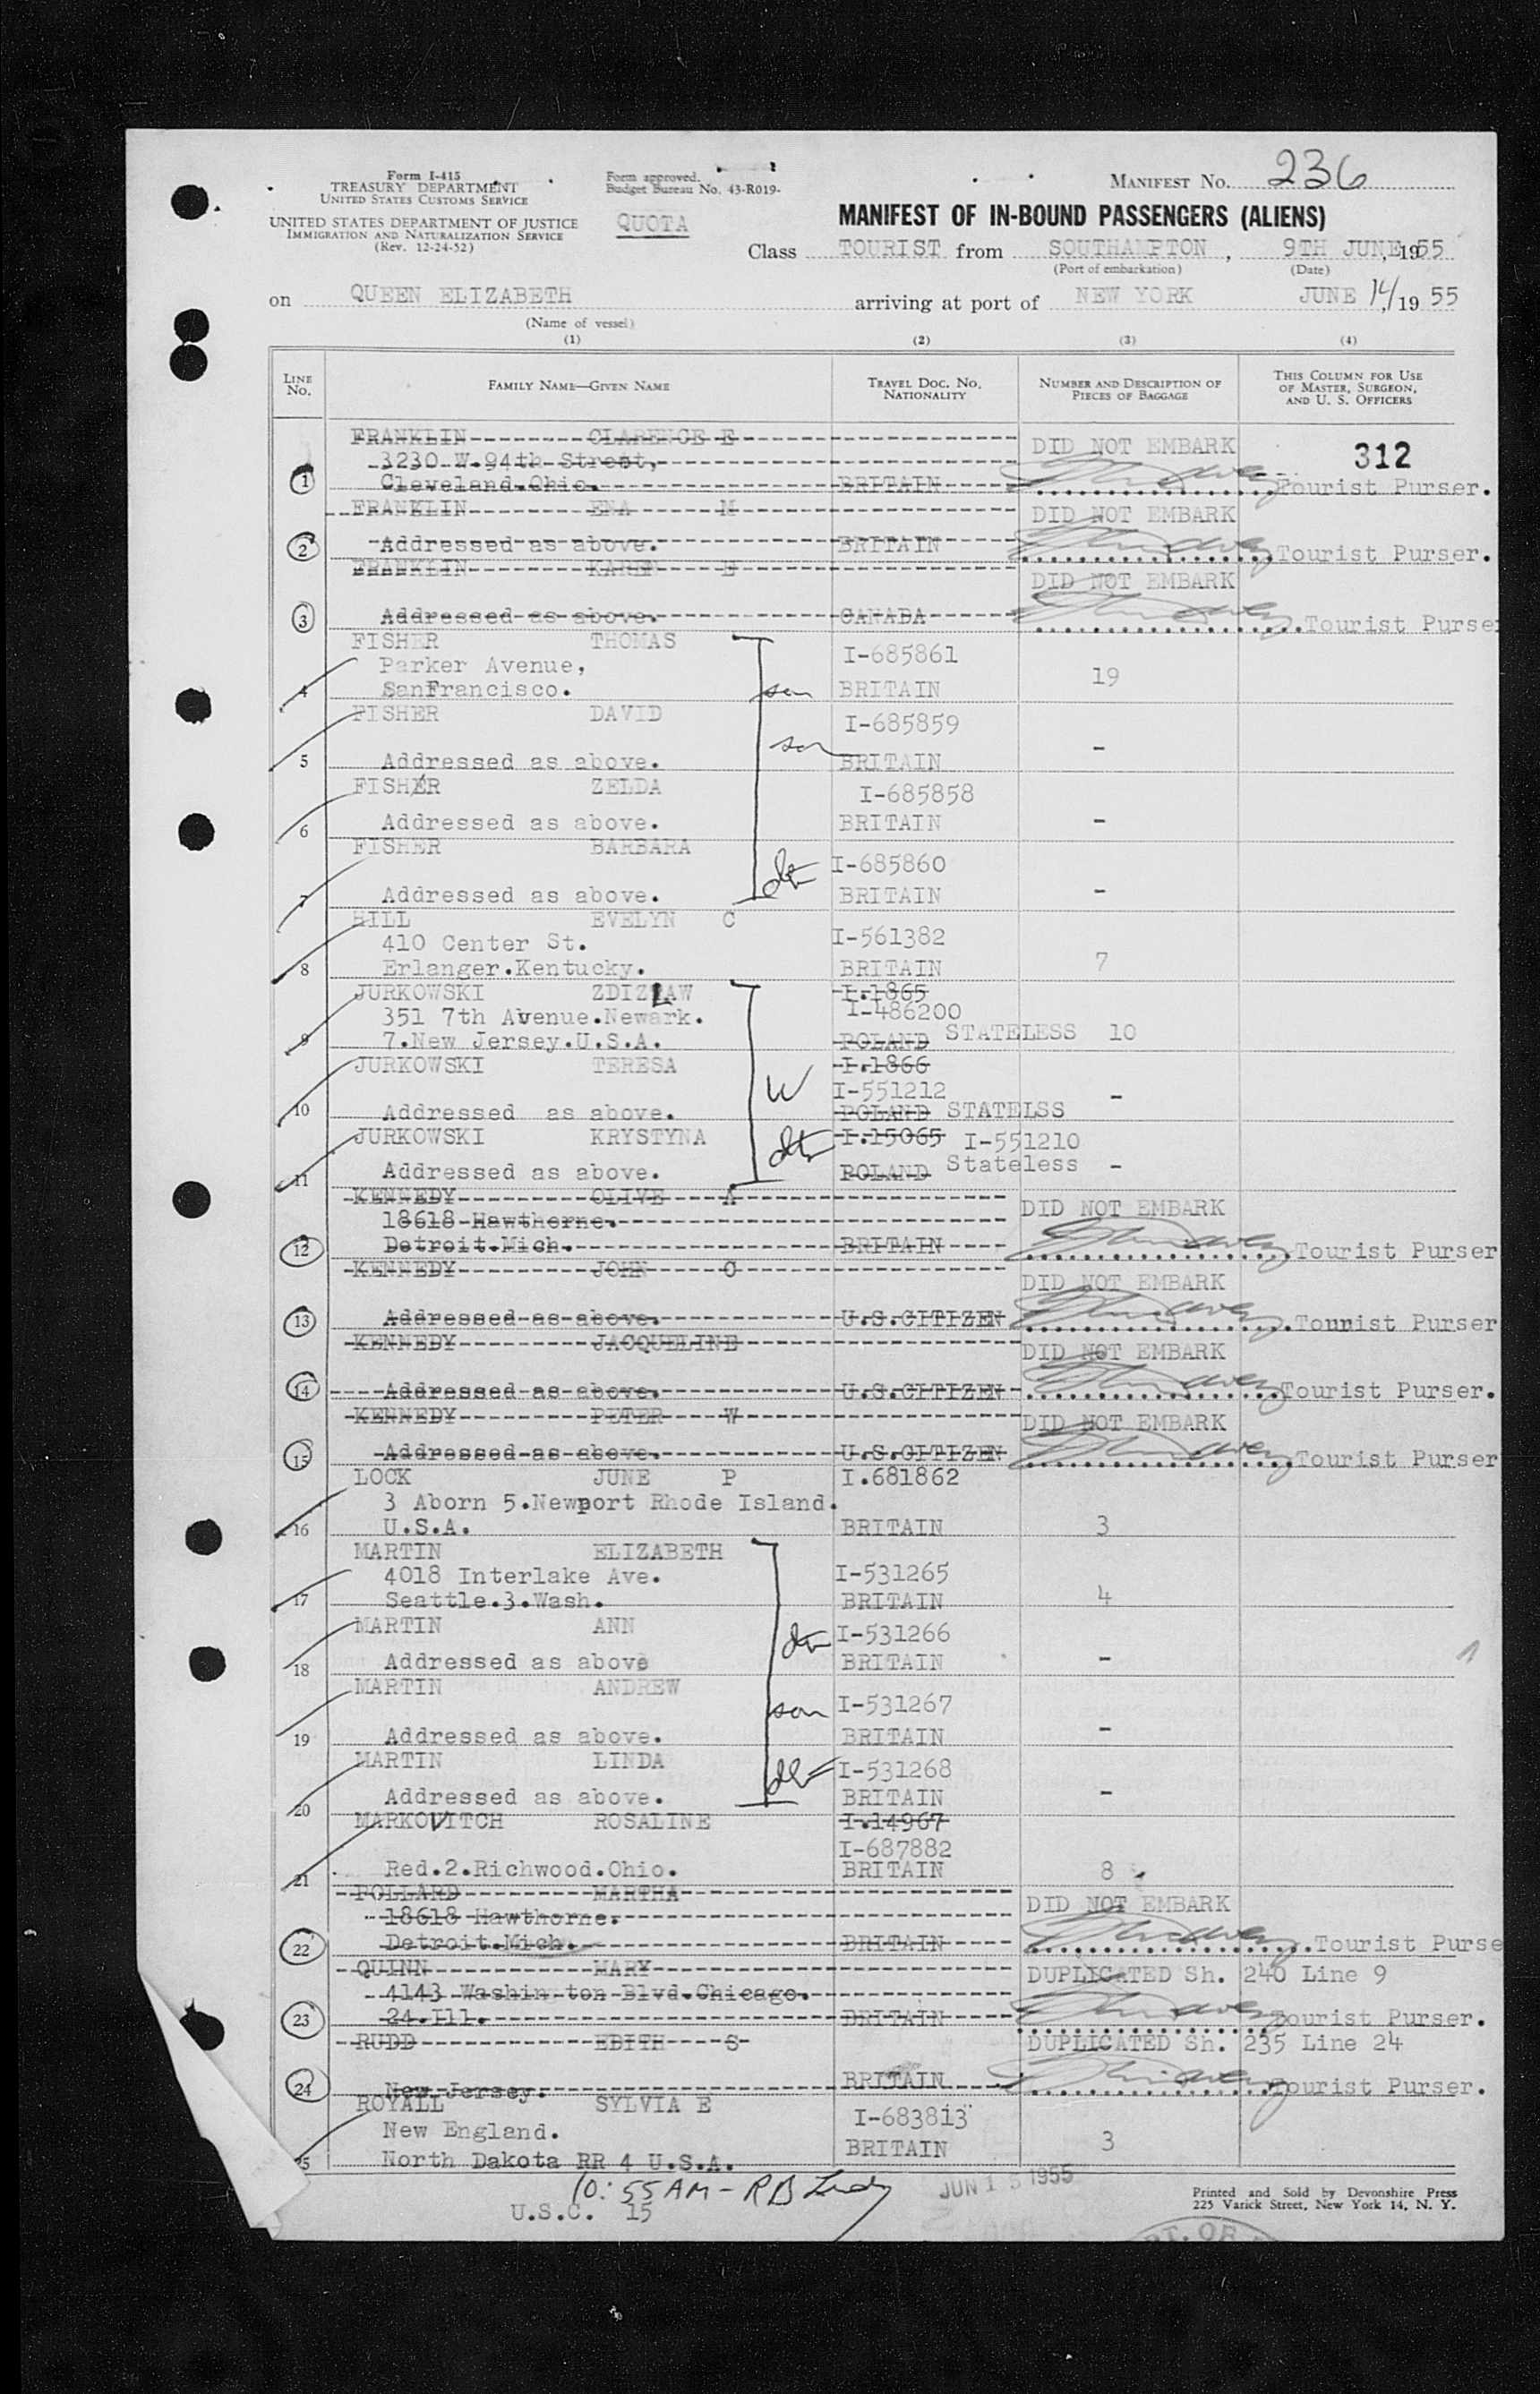 Form I-415
TREASURY DEPARTMENT
UNITED STATES CUSTOMS SERVICE
UNITED STATES DEPARTMENT OF JUSTICE
IMMIGRATION AND NATURALIZATION SERVICE
(Rev. 12-24-52)
Form approved.
Budget Bureau No. 43-R019-
QUOTA
MANIFEST No. 236
MANIFEST OF IN-BOUND PASSENGERS (ALIENS)
Class TOURIST from SOUTHAMPTON, 9TH JUNE, 1955
(Port of embarkation) (Date)
on QUEEN ELIZABETH arriving at port of NEW YORK JUNE 14, 1955
(Name of vessel)
(1) (2) (3) (4)
LINE No. FAMILY NAME—GIVEN NAME TRAVEL DOC. NO. NATIONALITY NUMBER AND DESCRIPTION OF PIECES OF BAGGAGE THIS COLUMN FOR USE OF MASTER, SURGEON, AND U. S. OFFICERS
FRANKLIN CLARENCE E DID NOT EMBARK 312
3230 W.94th Street,
1 Cleveland.Ohio. BRITAIN Tourist Purser.
FRANKLIN ENA M DID NOT EMBARK
2 Addressed as above. BRITAIN Tourist Purser.
FRANKLIN KAREN E DID NOT EMBARK
3 Addressed as above. CANADA Tourist Purse
FISHER THOMAS I-685861
Parker Avenue, 19
4 SanFrancisco. son BRITAIN
FISHER DAVID I-685859
son -
5 Addressed as above. BRITAIN
FISHER ZELDA I-685858
6 Addressed as above. BRITAIN -
FISHER BARBARA I-685860
7 Addressed as above. BRITAIN -
HILL EVELYN C I-561382
410 Center St.
8 Erlanger.Kentucky. BRITAIN 7
JURKOWSKI ZDIZLAW I.1865
351 7th Avenue.Newark. I-486200
9 7.New Jersey.U.S.A. POLAND STATELESS 10
JURKOWSKI TERESA I.1866
W I-551212 -
10 Addressed as above. POLAND STATELSS
JURKOWSKI KRYSTYNA I.15065 I-551210
11 Addressed as above. POLAND Stateless -
KENNEDY OLIVE A DID NOT EMBARK
18618 Hawthorne.
12 Detroit.Mich. BRITAIN Tourist Purser
KENNEDY JOHN O DID NOT EMBARK
13 Addressed as above. U.S.CITIZEN Tourist Purser
KENNEDY JACQUELINE DID NOT EMBARK
14 Addressed as above. U.S.CITIZEN Tourist Purser.
KENNEDY PETER W DID NOT EMBARK
15 Addressed as above. U.S.CITIZEN Tourist Purser
LOCK JUNE P I.681862
3 Aborn 5.Newport Rhode Island.
16 U.S.A. BRITAIN 3
MARTIN ELIZABETH I-531265
4018 Interlake Ave.
17 Seattle.3.Wash. BRITAIN 4
MARTIN ANN I-531266
18 Addressed as above BRITAIN -
MARTIN ANDREW I-531267
son
19 Addressed as above. BRITAIN -
MARTIN LINDA I-531268
20 Addressed as above. BRITAIN -
MARKOVITCH ROSALINE I.14967
I-687882
21 Red.2.Richwood.Ohio. BRITAIN 8
POLLARD MARTHA DID NOT EMBARK
18618 Hawthorne.
22 Detroit.Mich. BRITAIN Tourist Purse
QUINN MARY DUPLICATED Sh. 240 Line 9
4143 Washin ton Blvd.Chicago.
23 24.Ill. BRITAIN Tourist Purser.
RUDD EDITH S DUPLICATED Sh. 235 Line 24
24 New Jersey. BRITAIN Tourist Purser.
ROYALL SYLVIA E I-683813
New England.
25 North Dakota RR 4 U.S.A. BRITAIN 3
10:55AM - RB
U.S.C. 15
JUN 15 1955
Printed and Sold by Devonshire Press
225 Varick Street, New York 14, N. Y.